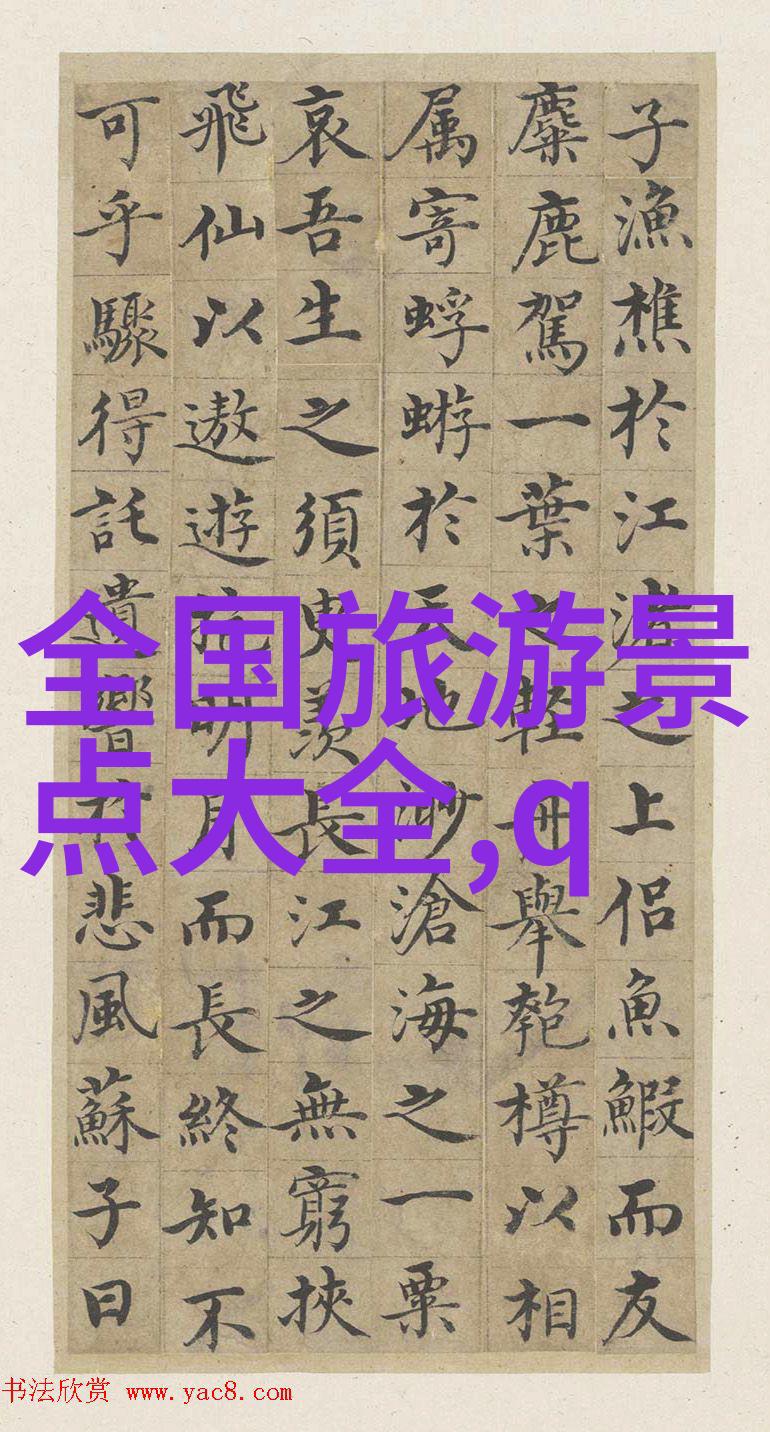 子漁樵於江渚之上侶魚鰕而友
麋鹿駕一葉之輕舟舉匏樽以相
属寄蜉蝣於天地渺滄海之一粟
哀吾生之須臾羨長江之無窮挾
飛仙以遨遊抱明月而長終知不
可乎驟得託遺響於悲風蘇子曰
全国旅游景
点大全,q
书法欣赏 www.yac8.com